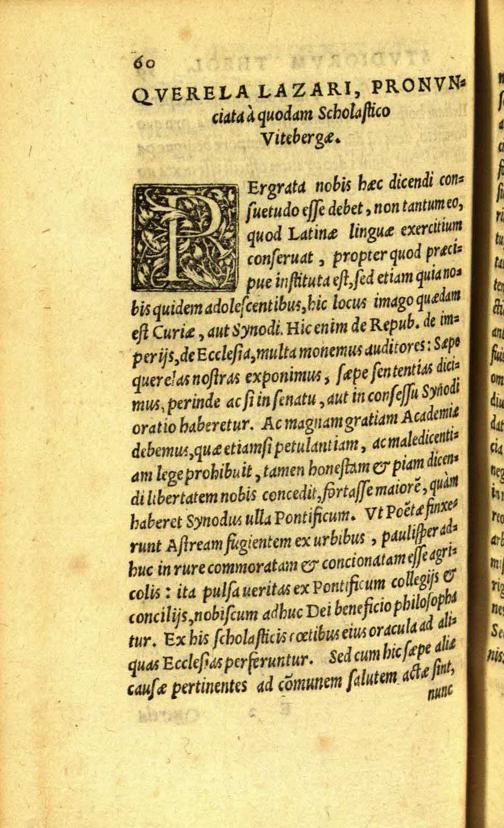 60
QVERELA LAZARI, PRONVN=
ciata à quodam Scholastico
Vitebergæ.
PErgrata nobis hæc dicendi con=
suetudo esse debet, non tantum eo,
quod Latinæ linguæ exercitium
conseruat, propter quod præci=
pue instituta est, sed etiam quia no=
bis quidem adolescentibus, hic locus imago quædam
est Curiæ, aut Synodi. Hic enim de Repub. de im=
perijs, de Ecclesia, multa monemus auditores: Sæpe
querelas nostras exponimus, sæpe sententias dici=
mus, perinde ac si in senatu, aut in consessu Synodi
oratio haberetur. Ac magnam gratiam Academiæ
debemus, quæ etiamsi petulantiam, ac maledicenti=
am lege prohibuit, tamen honestam & piam dicen=
di libertatem nobis concedit, fortasse maiorē, quàm
haberet Synodus ulla Pontificum. Vt Poëtæ finxe=
runt Astream fugientem ex urbibus, paulisper ad=
huc in rure commoratam & concionatam esse agri=
colis: ita pulsa ueritas ex Pontificum collegijs &
concilijs, nobiscum adhuc Dei beneficio philosopha
tur. Ex his scholasticis cœtibus eius oracula ad ali=
quas Ecclesias perferuntur. Sed cum hic sæpe aliæ
causæ pertinentes ad cōmunem salutem actæ sint,
nunc